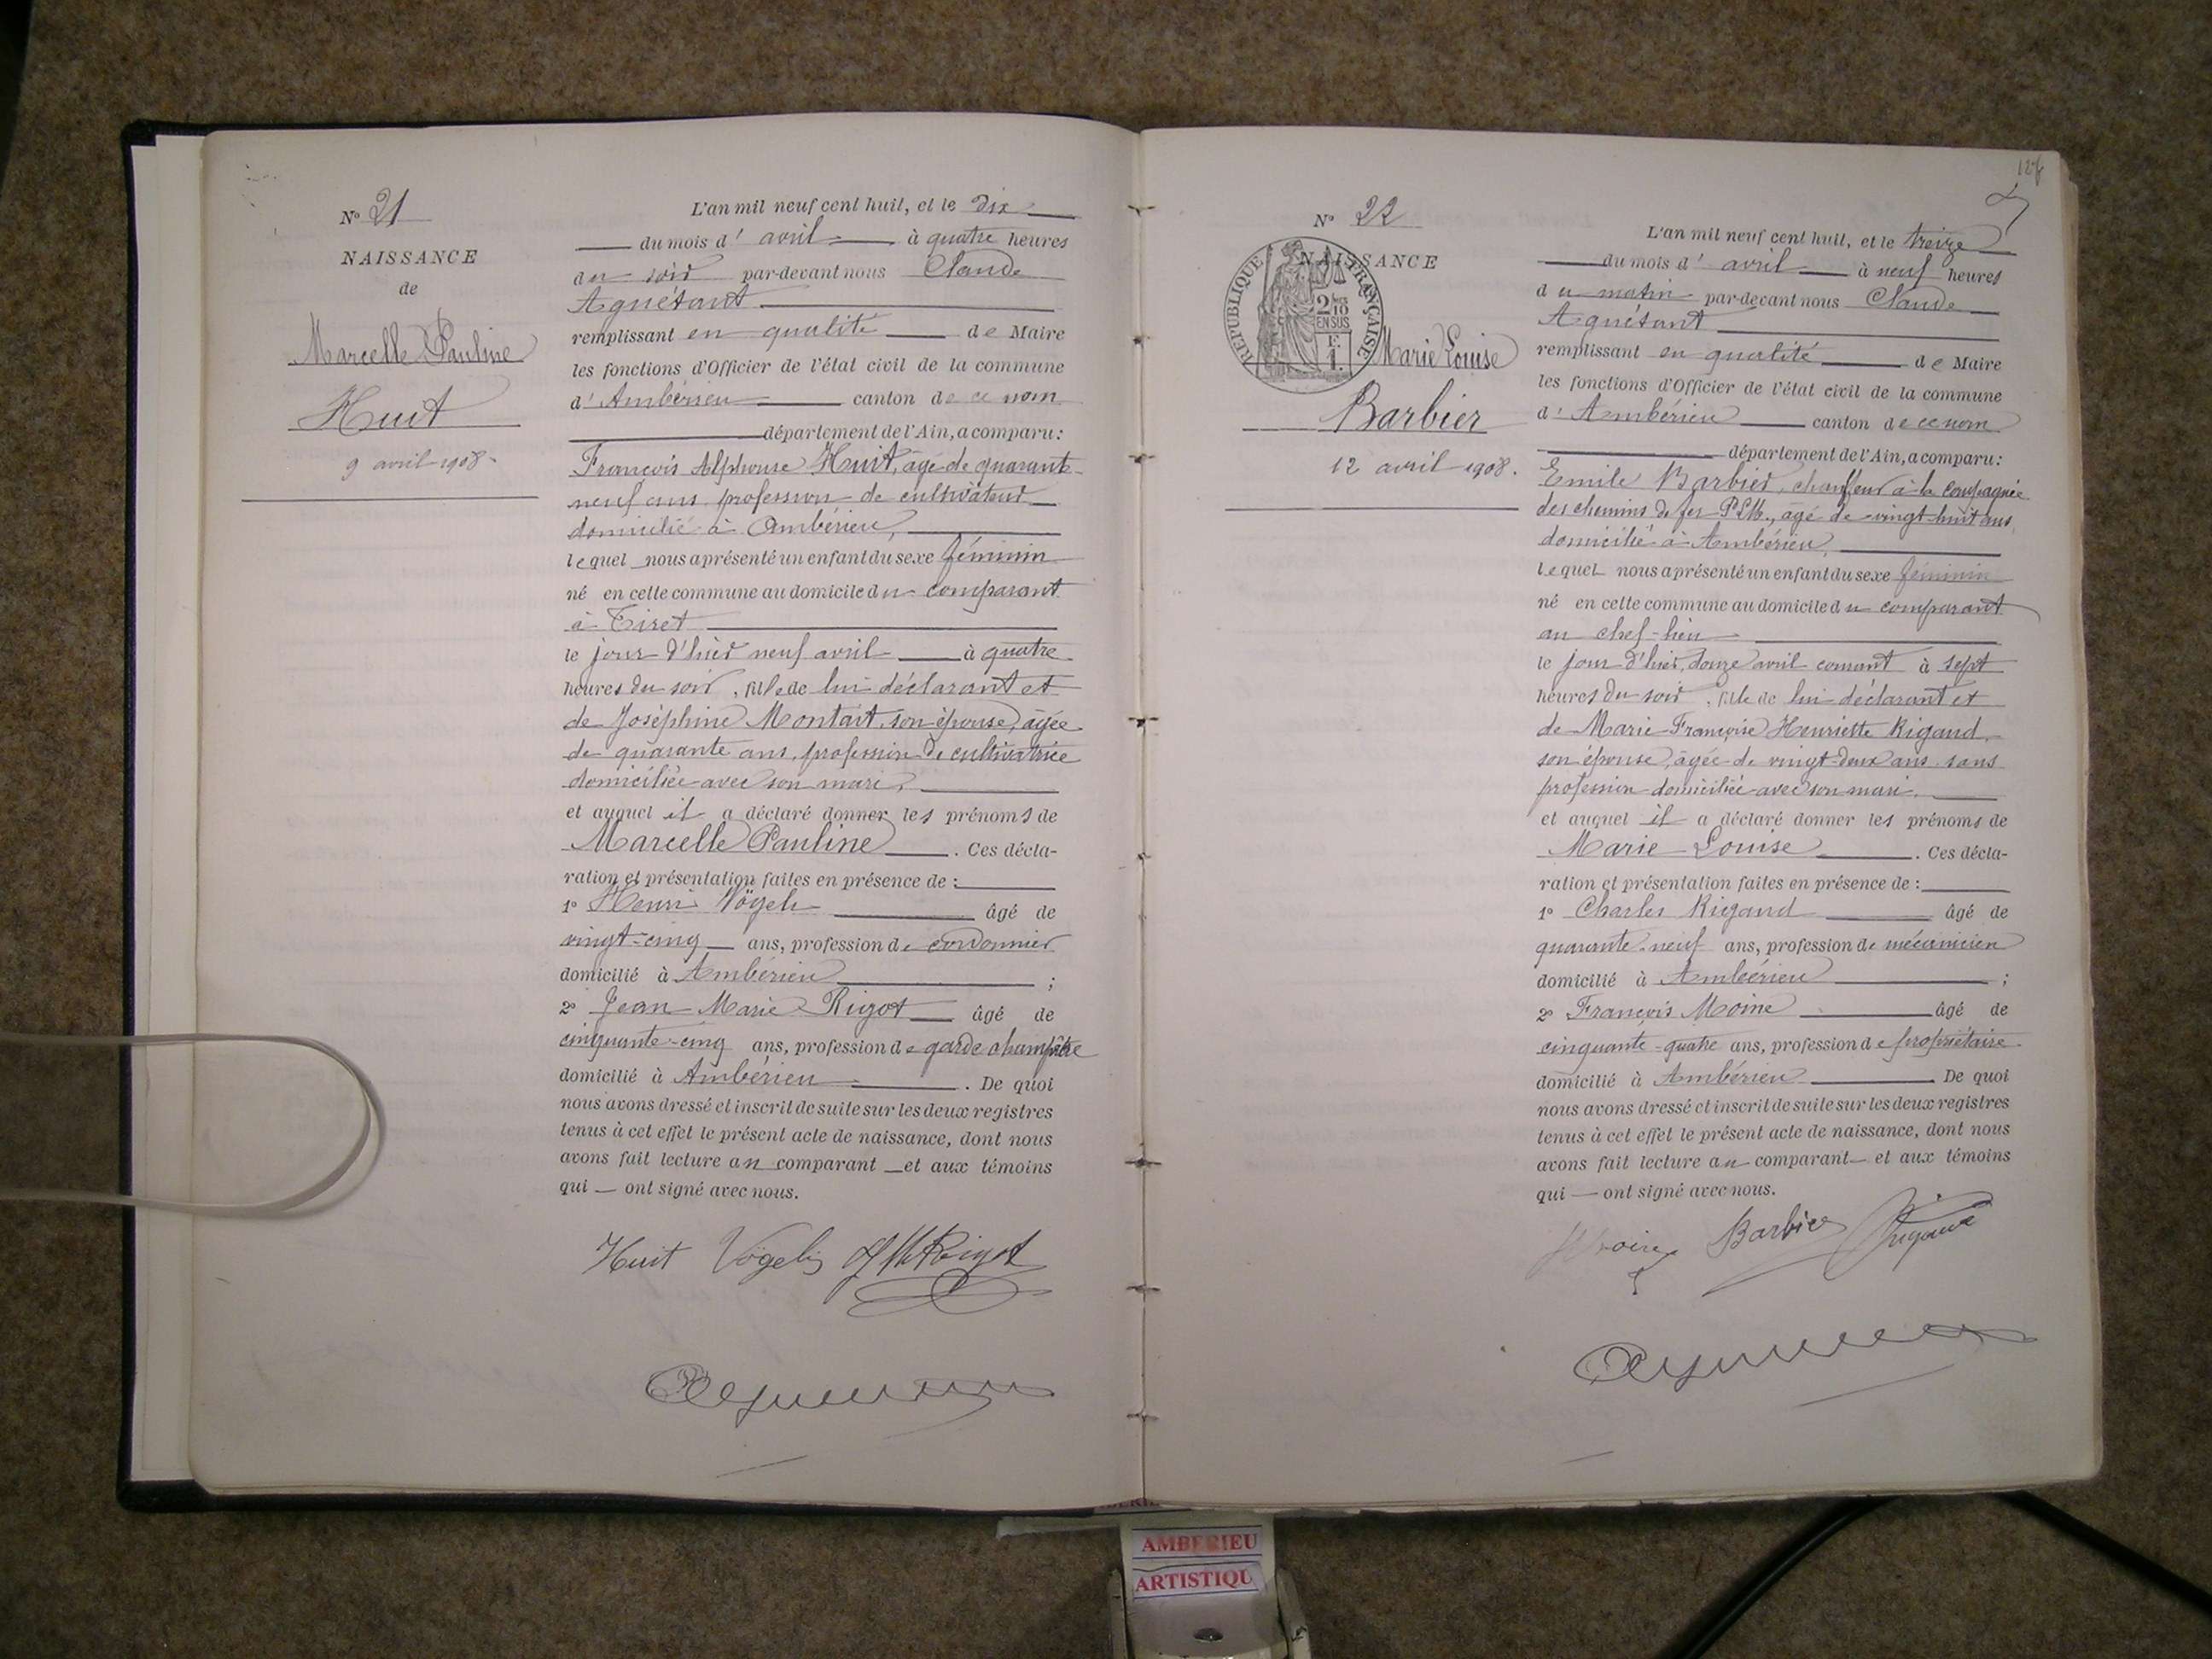 N° 21
NAISSANCE
de
Marcelle Pauline
Huit
9 avril 1908.
L'an mil neuf cent huit, et le dix
du mois d' avril à quatre heures
du soir par-devant nous Claude
Aguétant
remplissant en qualité de Maire
les fonctions d'Officier de l'état civil de la commune
d' Ambérieu canton de ce nom
département de l'Ain, a comparu:
François Alphonse Huit, âgé de quarante-
neuf ans profession de cultivateur
domicilié à Ambérieu,
lequel nous a présenté un enfant du sexe féminin
né en cette commune au domicile du comparant
à Tiret
le jour d'hier neuf avril à quatre
heures du soir, fille de lui déclarant et
de Joséphine Montait, son épouse, âgée
de quarante ans, profession de cultivatrice
domiciliée avec son mari,
et auquel il a déclaré donner les prénoms de
Marcelle Pauline. Ces décla-
ration et présentation faites en présence de :
1° Henri Vögeli âgé de
vingt-cinq ans, profession de cordonnier
domicilié à Ambérieu ;
2° Jean Marie Rigot âgé de
cinquante-cinq ans, profession de garde champêtre
domicilié à Ambérieu. De quoi
nous avons dressé et inscrit de suite sur les deux registres
tenus à cet effet le présent acte de naissance, dont nous
avons fait lecture au comparant et aux témoins
qui ont signé avec nous.
Huit Vögeli JM Rigot
126
N° 22
NAISSANCE
RÉPUBLIQUE FRANÇAISE
2/10
EN SUS
F.
1.
Marie Louise
Barbier
12 avril 1908.
L'an mil neuf cent huit, et le treize
du mois d' avril à neuf heures
du matin par-devant nous Claude
Aguétant
remplissant en qualité de Maire
les fonctions d'Officier de l'état civil de la commune
d' Ambérieu canton de ce nom
département de l'Ain, a comparu:
Emile Barbier, chauffeur à la compagnie
des chemins de fer PLM., agé de vingt-huit ans,
domicilié à Ambérieu,
lequel nous a présenté un enfant du sexe féminin
né en cette commune au domicile du comparant
au chef-lieu
le jour d'hier, douze avril courant à sept
heures du soir, fille de lui déclarant et
de Marie Françoise Henriette Rigaud
son épouse, âgée de vingt-deux ans sans
profession domiciliée avec son mari.
et auquel il a déclaré donner les prénoms de
Marie Louise. Ces décla-
ration et présentation faites en présence de :
1° Charles Rigaud âgé de
quarante-neuf ans, profession de mécanicien
domicilié à Ambérieu ;
2° François Moine âgé de
cinquante-quatre ans, profession de propriétaire
domicilié à Ambérieu De quoi
nous avons dressé et inscrit de suite sur les deux registres
tenus à cet effet le présent acte de naissance, dont nous
avons fait lecture au comparant et aux témoins
qui ont signé avec nous.
Moine Barbier Rigaud
AMBERIEU
ARTISTIQU